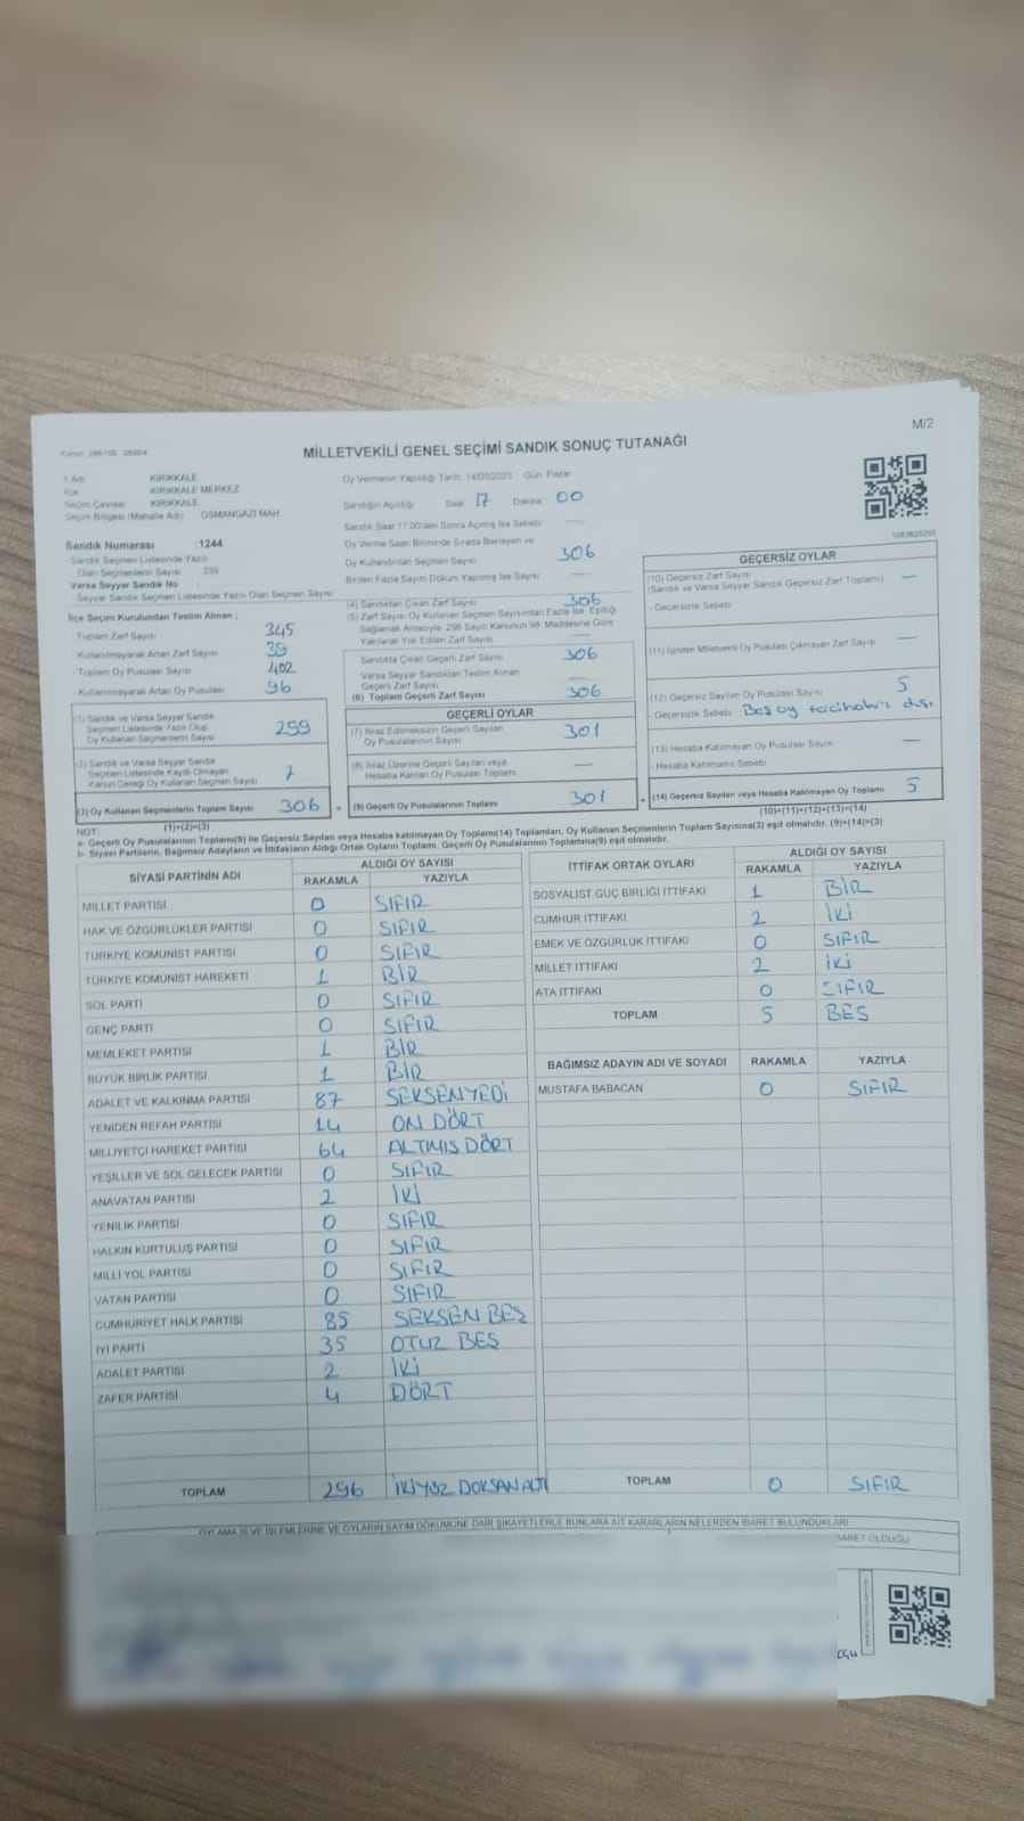 M/2
MİLLETVEKİLİ GENEL SEÇİMİ SANDIK SONUÇ TUTANAĞI
İl Adı KIRIKKALE
İlçe KIRIKKALE MERKEZ
Seçim Çevresi KIRIKKALE
Seçim Bölgesi (Mahalle Adı) OSMANGAZİ MAH.
Sandık Numarası :1244
Sandık Seçmen Listesinde Yazılı
Olan Seçmenlerin Sayısı
Varsa Seyyar Sandık No
Seyyar Sandık Seçmen Listesinde Yazılı Olan Seçmen Sayısı
Oy Vermenin Yapıldığı Tarih: 14/05/2023 Gün: Pazar
Sandığın Açıldığı Saat 17 Dakika 00
Sandık Saat 17.00'den Sonra Açılmış İse Sebebi —
Oy Verme Saati Bitiminde Sırada Bekleyen ve
Oy Kullandırılan Seçmen Sayısı 306
Birden Fazla Sayım Döküm Yapılmış İse Sayısı —
İlçe Seçim Kurulundan Teslim Alınan ;
Toplam Zarf Sayısı 345
Kullanılmayarak Artan Zarf Sayısı 39
Toplam Oy Pusulası Sayısı 402
Kullanılmayarak Artan Oy Pusulası 96
(1) Sandık ve Varsa Seyyar Sandık
Seçmen Listesinde Yazılı Olup
Oy Kullanan Seçmenlerin Sayısı 299
(2) Sandık ve Varsa Seyyar Sandık
Seçmen Listesinde Kayıtlı Olmayan
Kanun Gereği Oy Kullanan Seçmen Sayısı 7
(3) Oy Kullanan Seçmenlerin Toplam Sayısı 306
(1)+(2)=(3)
(4) Sandıktan Çıkan Zarf Sayısı 306
(5) Zarf Sayısı Oy Kullanan Seçmen Sayısından Fazla İse, Eşitliği
Sağlamak Amacıyla, 298 Sayılı Kanunun 98. Maddesine Göre
Yakılarak Yok Edilen Zarf Sayısı —
Sandıkta Çıkan Geçerli Zarf Sayısı 306
Varsa Seyyar Sandıktan Teslim Alınan
Geçerli Zarf Sayısı
(6) Toplam Geçerli Zarf Sayısı 306
GEÇERLİ OYLAR
(7) İtiraz Edilmeksizin Geçerli Sayılan
Oy Pusulalarının Sayısı 301
(8) İtiraz Üzerine Geçerli Sayılan veya
Hesaba Katılan Oy Pusulası Toplamı —
(9) Geçerli Oy Pusulalarının Toplamı 301
GEÇERSİZ OYLAR
(10) Geçersiz Zarf Sayısı
(Sandık ve Varsa Seyyar Sandık Geçersiz Zarf Toplamı) —
- Geçersizlik Sebebi
(11) İçinden Milletvekili Oy Pusulası Çıkmayan Zarf Sayısı —
(12) Geçersiz Sayılan Oy Pusulası Sayısı 5
- Geçersizlik Sebebi : Beş oy
(13) Hesaba Katılmayan Oy Pusulası Sayısı —
- Hesaba Katılmama Sebebi
(14) Geçersiz Sayılan veya Hesaba Katılmayan Oy Toplamı 5
(10)+(11)+(12)+(13)=(14)
NOT:
a- Geçerli Oy Pusulalarının Toplamı(9) ile Geçersiz Sayılan veya Hesaba katılmayan Oy Toplamı(14) Toplamları, Oy Kullanan Seçmenlerin Toplam Sayısına(3) eşit olmalıdır. (9)+(14)=(3)
b- Siyasi Partilerin, Bağımsız Adayların ve İttifakların Aldığı Ortak Oyların Toplamı, Geçerli Oy Pusulalarının Toplamına(9) eşit olmalıdır.
SİYASİ PARTİNİN ADI ALDIĞI OY SAYISI
RAKAMLA YAZIYLA
MİLLET PARTİSİ 0 SIFIR
HAK VE ÖZGÜRLÜKLER PARTİSİ 0 SIFIR
TÜRKİYE KOMÜNİST PARTİSİ 0 SIFIR
TÜRKİYE KOMÜNİST HAREKETİ 1 BİR
SOL PARTİ 0 SIFIR
GENÇ PARTİ 0 SIFIR
MEMLEKET PARTİSİ 1 BİR
BÜYÜK BİRLİK PARTİSİ 1 BİR
ADALET VE KALKINMA PARTİSİ 87 SEKSENYEDİ
YENİDEN REFAH PARTİSİ 14 ON DÖRT
MİLLİYETÇİ HAREKET PARTİSİ 64 ALTMIŞ DÖRT
YEŞİLLER VE SOL GELECEK PARTİSİ 0 SIFIR
ANAVATAN PARTİSİ 2 İKİ
YENİLİK PARTİSİ 0 SIFIR
HALKIN KURTULUŞ PARTİSİ 0 SIFIR
MİLLİ YOL PARTİSİ 0 SIFIR
VATAN PARTİSİ 0 SIFIR
CUMHURİYET HALK PARTİSİ 85 SEKSEN BEŞ
İYİ PARTİ 35 OTUZ BEŞ
ADALET PARTİSİ 2 İKİ
ZAFER PARTİSİ 4 DÖRT
TOPLAM 296 İKİYÜZ DOKSAN ALTI
İTTİFAK ORTAK OYLARI ALDIĞI OY SAYISI
RAKAMLA YAZIYLA
SOSYALİST GÜÇ BİRLİĞİ İTTİFAKI 1 BİR
CUMHUR İTTİFAKI 2 İKİ
EMEK VE ÖZGÜRLÜK İTTİFAKI 0 SIFIR
MİLLET İTTİFAKI 2 İKİ
ATA İTTİFAKI 0 SIFIR
TOPLAM 5 BEŞ
BAĞIMSIZ ADAYIN ADI VE SOYADI RAKAMLA YAZIYLA
MUSTAFA BABACAN 0 SIFIR
TOPLAM 0 SIFIR
OYLAMA İŞ VE İŞLEMLERİNE VE OYLARIN SAYIM DÖKÜMÜNE DAİR ŞİKAYETLERLE BUNLARA AİT KARARLARIN NELERDEN İBARET BULUNDUKLARI
İBARET OLDUĞU